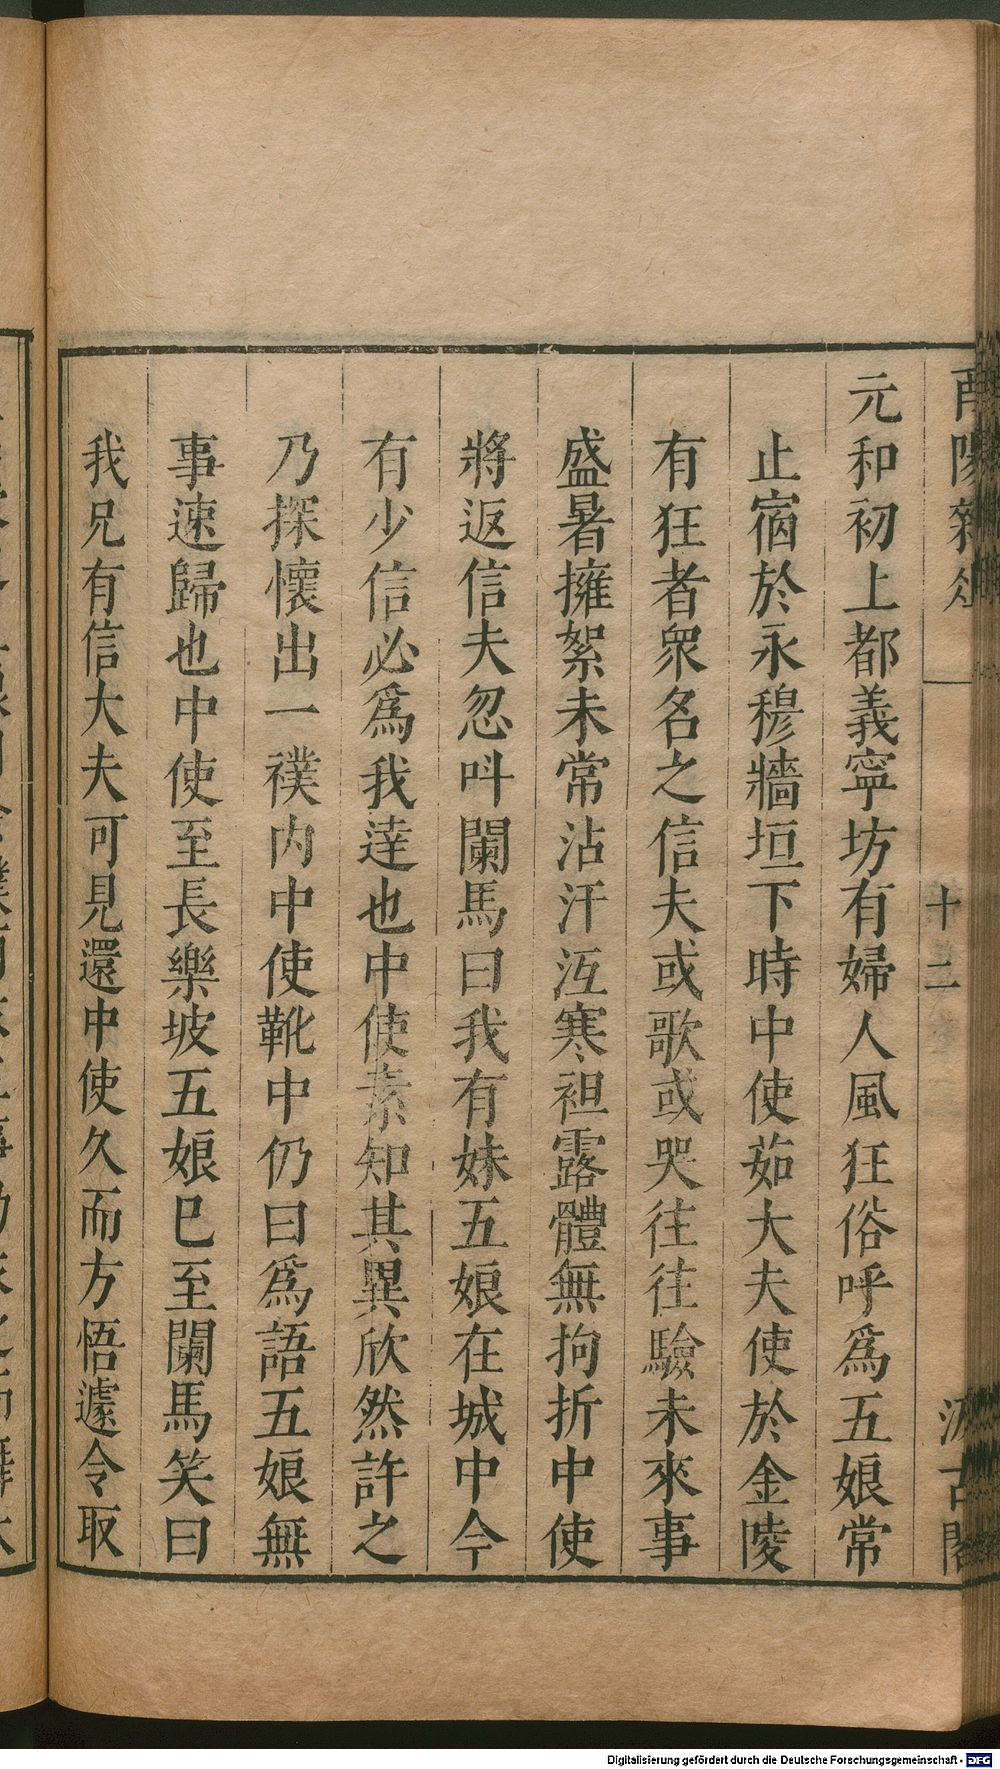 酉陽雜俎
十二
汲古閣
元和初上都義寧坊有婦人風狂俗呼爲五娘常
止宿於永穆牆垣下時中使茹大夫使於金陵
有狂者衆名之信夫或歌或哭往往驗未來事
盛暑擁絮未常沾汗沍寒袒露體無拘折中使
將返信夫忽叫闌馬曰我有妹五娘在城中今
有少信必爲我達也中使素知其異欣然許之
乃探懷出一襆内中使靴中仍曰爲語五娘無
事速歸也中使至長樂坡五娘已至闌馬笑曰
我兄有信大夫可見還中使久而方悟遽令取
Digitalisierung gefördert durch die Deutsche Forschungsgemeinschaft - DFG